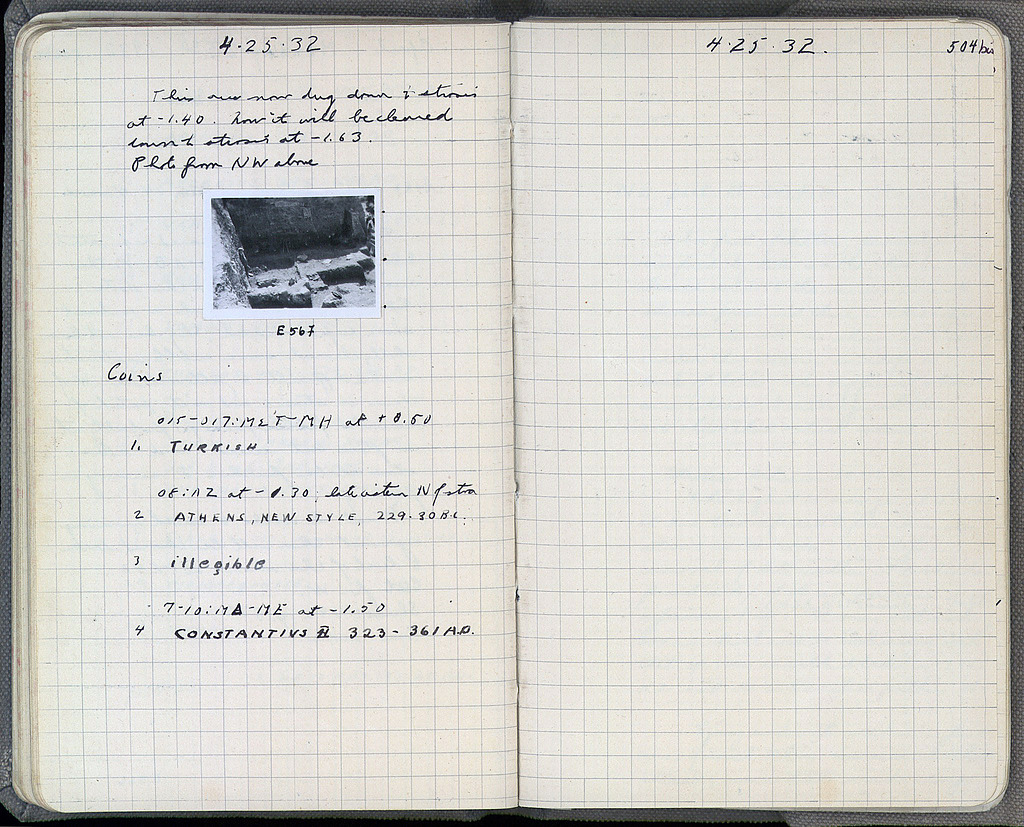 4·25·32
This area now dug down to strosis
at -1.40. Now it will be cleared
down to strosis at -1.63.
Photo from NW above
E 567
Coins
015-017:ME-MH at +0.50
1. TURKISH
at -1.30,
2 ATHENS, NEW STYLE, 229-30 B.C.
3 illegible
7-10:MA-ME at -1.50
4 CONSTANTIUS II 323-361 A.D.
4·25·32.
504 bis